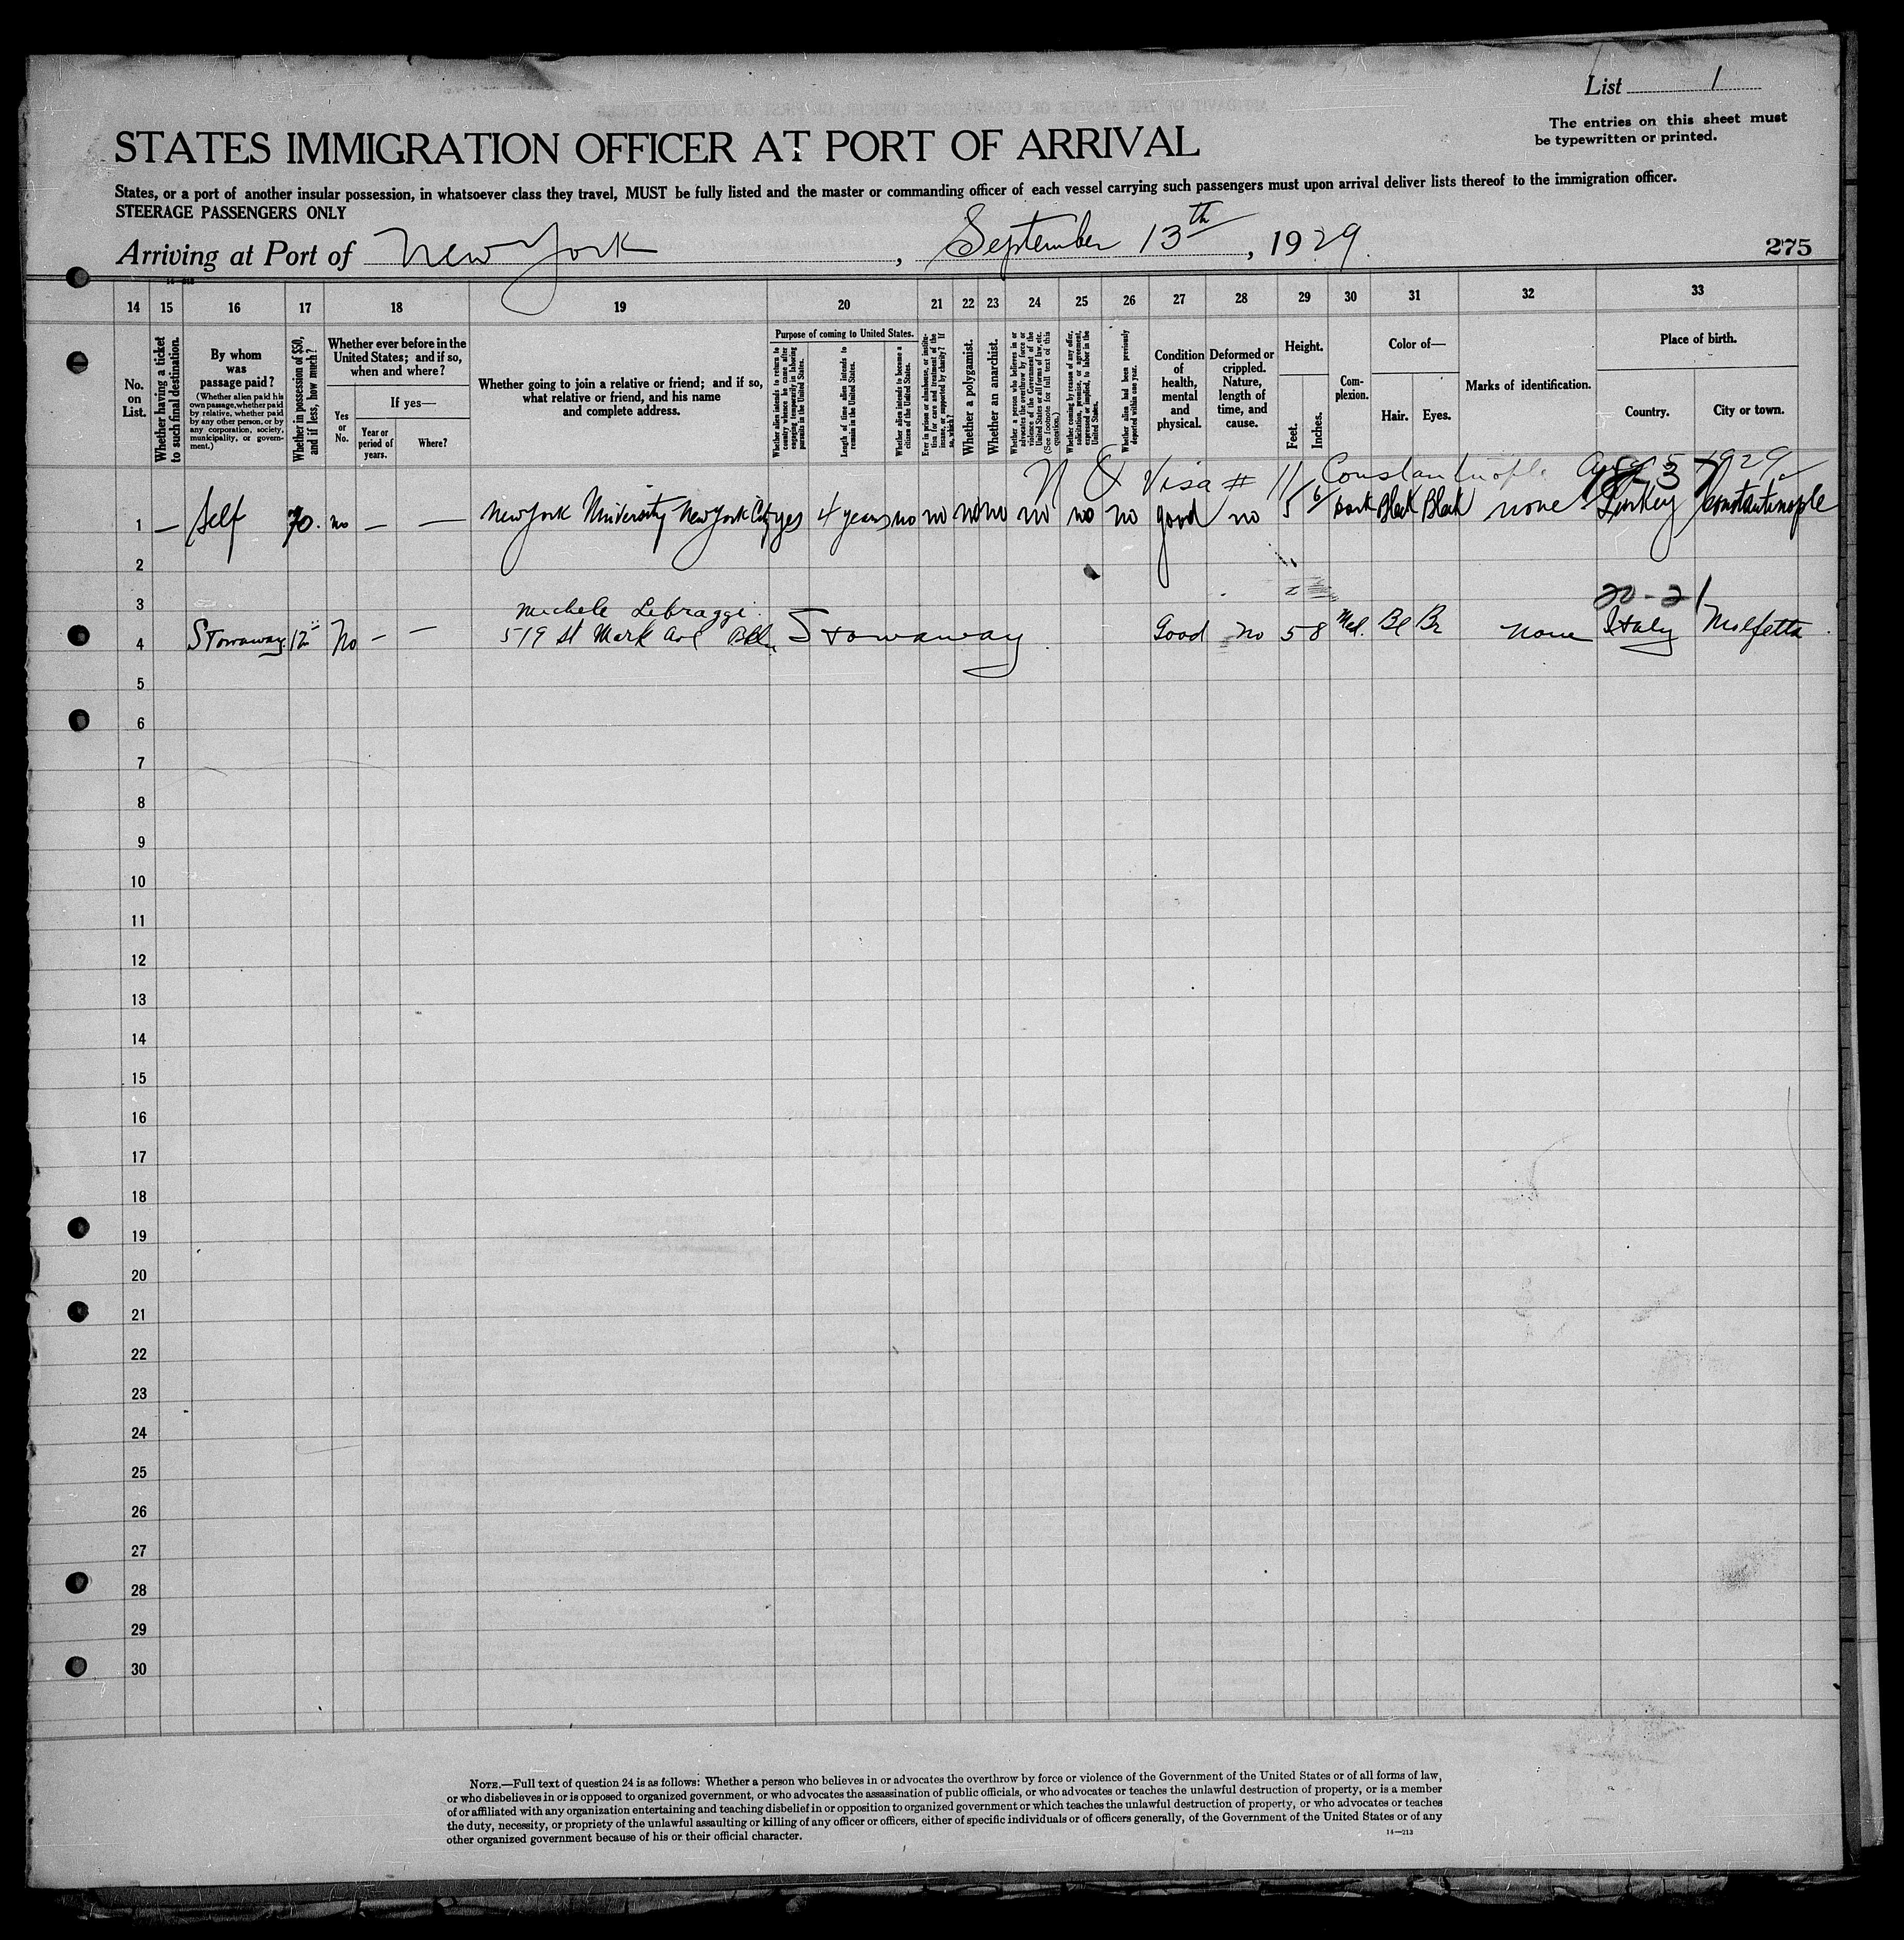 List 1
The entries on this sheet must
be typewritten or printed.
STATES IMMIGRATION OFFICER AT PORT OF ARRIVAL
States, or a port of another insular possession, in whatsoever class they travel, MUST be fully listed and the master or commanding officer of each vessel carrying such passengers must upon arrival deliver lists thereof to the immigration officer.
STEERAGE PASSENGERS ONLY
Arriving at Port of New York, September 13th, 1929.
275
14 15 16 17 18 19 20 21 22 23 24 25 26 27 28 29 30 31 32 33
No.
on
List.
Whether having a ticket
to such final destination.
By whom
was
passage paid?
(Whether alien paid his
own passage, whether paid
by relative, whether paid
by any other person, or by
any corporation, society,
municipality, or govern-
ment.)
Whether in possession of $50,
and if less, how much?
Whether ever before in the
United States; and if so,
when and where?
Yes
or
No.
If yes—
Year or
period of
years.
Where?
Whether going to join a relative or friend; and if so,
what relative or friend, and his name
and complete address.
Purpose of coming to United States.
Whether alien intends to return to
country whence he came after
engaging temporarily in laboring
pursuits in the United States.
Length of time alien intends to
remain in the United States.
Whether alien intends to become a
citizen of the United States.
Ever in prison or almshouse, or institu-
tion for care and treatment of the
insane, or supported by charity? If
so, which?
Whether a polygamist.
Whether an anarchist.
Whether a person who believes in or
advocates the overthrow by force or
violence of the Government of the
United States or all forms of law, etc.
(See footnote for full text of this
question.)
Whether coming by reason of any offer,
solicitation, promise, or agreement,
expressed or implied, to labor in the
United States.
Whether alien had been previously
deported within one year.
Condition
of
health,
mental
and
physical.
Deformed or
crippled.
Nature,
length of
time, and
cause.
Height.
Feet.
Inches.
Com-
plexion.
Color of—
Hair.
Eyes.
Marks of identification.
Place of birth.
Country.
City or town.
Visa # 11 Constantinople Aug 5 1929
1 — Self 70. no — — New York University New York City yes 4 years no no no no no no no good no 5 6 Dark Black Black none Turkey Constantinople
2
3 Michele 20-21
4 Stowaway 12 No — — 519 St Mark Ave Bkln Stowaway Good no 5 8 Med. Bl Br none Italy Molfetta
5
6
7
8
9
10
11
12
13
14
15
16
17
18
19
20
21
22
23
24
25
26
27
28
29
30
NOTE.—Full text of question 24 is as follows: Whether a person who believes in or advocates the overthrow by force or violence of the Government of the United States or of all forms of law,
or who disbelieves in or is opposed to organized government, or who advocates the assassination of public officials, or who advocates or teaches the unlawful destruction of property, or is a member
of or affiliated with any organization entertaining and teaching disbelief in or opposition to organized government or which teaches the unlawful destruction of property, or who advocates or teaches
the duty, necessity, or propriety of the unlawful assaulting or killing of any officer or officers, either of specific individuals or of officers generally, of the Government of the United States or of any
other organized government because of his or their official character.
14—213